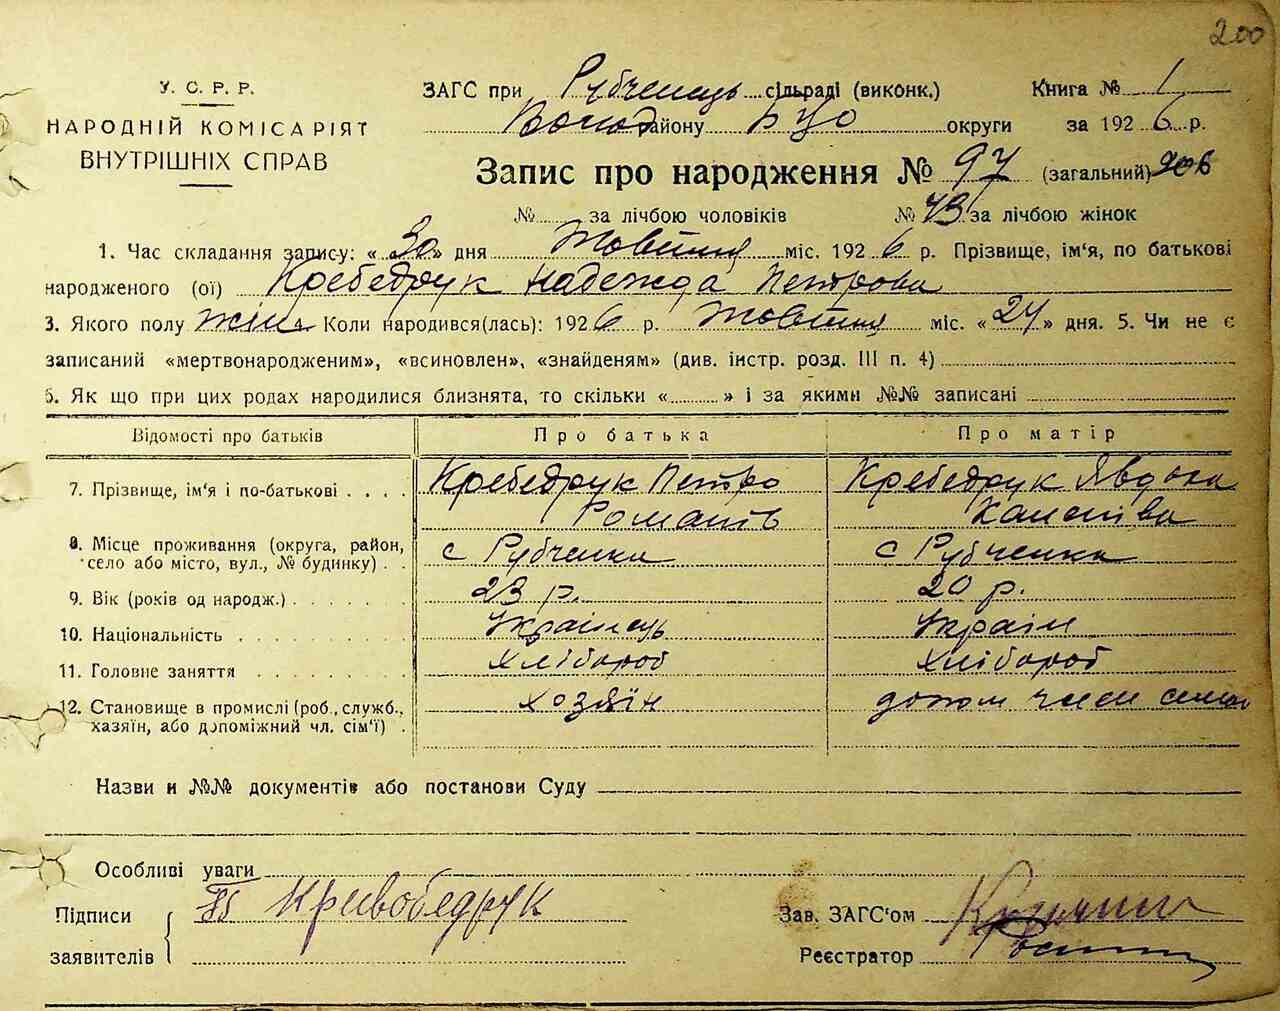 200
У. С. Р. Р.
НАРОДНІЙ КОМІСАРІЯТ
ВНУТРІШНІХ СПРАВ
ЗАГС при Рубченець сільраді (виконк.) Книга № 1
Волод айону БЦо округи за 1926 р.
Запис про народження № 97 (загальний) 206
№ за лічбою чоловіків № 43 за лічбою жінок
1. Час складання запису: «30» дня Жовтня міс. 1926 р. Прізвище, ім'я, по батькові
народженого (ої) Кребедрук Надежда Петрова
3. Якого полу жін Коли народився(лась): 1926 р. Жовтня міс. «24» дня. 5. Чи не є
записаний «мертвонародженим», «всиновлен», «знайденям» (див. інстр. розд. III п. 4)
6. Як що при цих родах народилися близнята, то скільки «» і за якими №№ записані
Відомості про батьків Про батька Про матір
7. Прізвище, ім'я і по-батькові . . . . Кребедрук Петро Кребедрук Явдоха
Романів
8. Місце проживання (округа, район, с Рубченки с Рубченки
село або місто, вул., № будинку) . .
9. Вік (років од народж.) . . . . . . 23 р. 20 р.
10. Національність . . . . . . . . Українець Україн
11. Головне заняття . . . . . . . Хлібороб Хлібороб
12. Становище в промислі (роб., служб., хозяїн допом член семьи
хазяїн, або допоміжний чл. сім'ї) .
Назви и №№ документів або постанови Суду
Особливі уваги
Підписи Кривобедрук Зав. ЗАГС'ом
заявителів Реєстратор